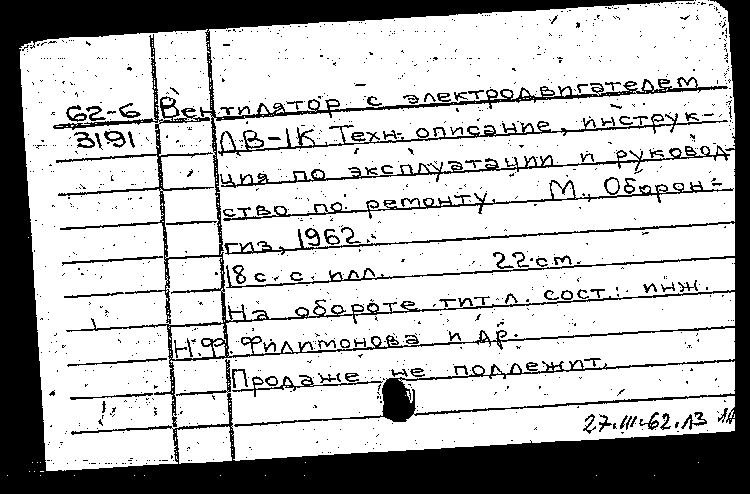 62-6 Вентилятор с электродвигателем
3191 ДВ-1К Техн. описание, инструк-
ция по эксплуатации и руковод-
ство по ремонту. М., Оборон-
гиз, 1962.
18 с. с. илл. 22 см.
На обороте тит. л. сост.: инж.
Н.Ф. Филимонова и др.
Продаже не подлежит.
27.III-62.ЛЗ